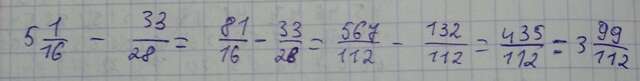 5 1/16 - 33/28 = 81/16 - 33/28 = 567/112 - 132/112 = 435/112 = 3 99/112